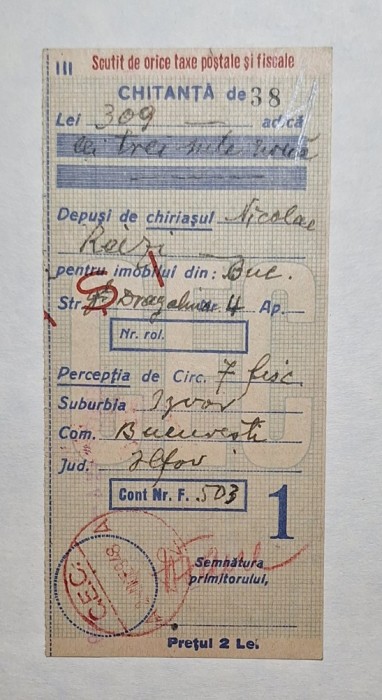 III Scutit de orice taxe poștale și fiscale
CHITANȚĂ de 38
Lei 309 — adică
lei trei sute nouă
Depuși de chiriașul Nicolae
pentru imobilul din: Buc.
Str. Dragalina Nr. 4 Ap.
Nr. rol.
Percepția de Circ. 7 fisc.
Suburbia Izvor
Com. București
Jud. Ilfov
Cont Nr. F. 503
1
C.E.C.
Semnătura
primitorului,
Prețul 2 Lei